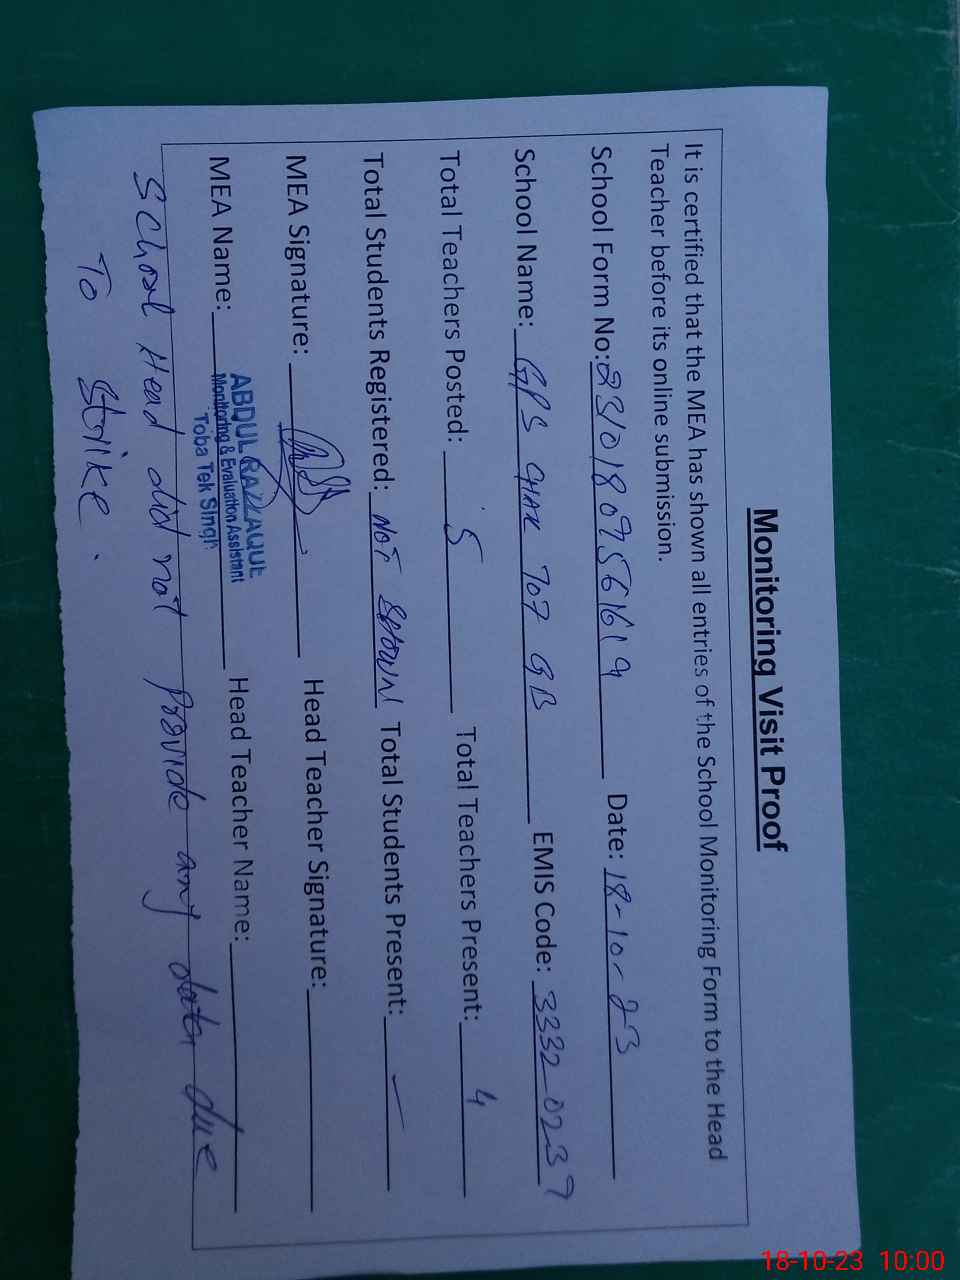 Monitoring Visit Proof
It is certified that the MEA has shown all entries of the School Monitoring Form to the Head
Teacher before its online submission.
School Form No: 23101809561619 Date: 18-10-23
School Name: GPS CHAK 707 GB EMIS Code: 33320237
Total Teachers Posted: 5 Total Teachers Present: 4
Total Students Registered: Not Shown Total Students Present: —
MEA Signature: Head Teacher Signature:
MEA Name: ABDUL RAZZAQUE Head Teacher Name:
Monitoring & Evaluation Assistant
Toba Tek Singh
School Head did not provide any data due
To Strike.
18-10-23 10:00